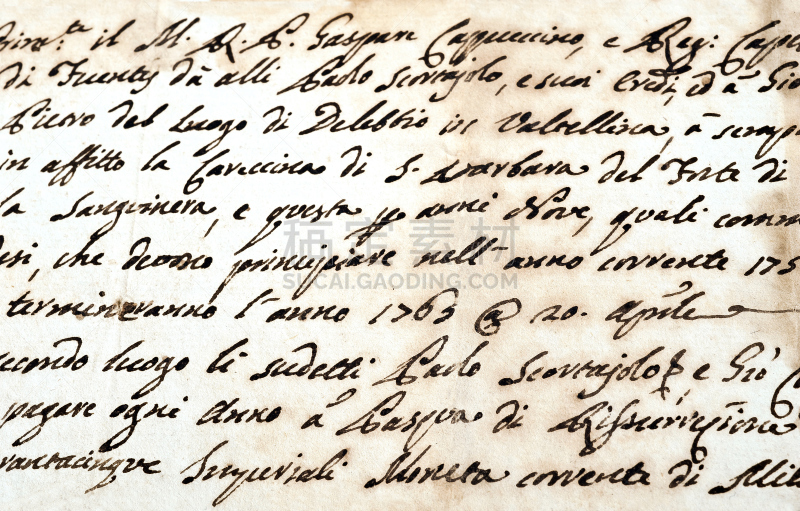 il M. R. P. Gaspare Cappuccino, e Reg:
di Fuentes dà alli Paolo Scortajolo, e suoi Eredi, ed à Gio
Piero del Luogo di Delebbio in Valtellina, à
in affitto la Careccina di S. Barbara del Forte di
la Sanguinera, e questa p anni Nove, quali
che deono principiare nell' anno corrente 175
termineranno l'anno 1763 @ 20. Aprile
econdo luogo li sudetti Paolo Scortajolo, e Gio
pagare ogni Anno à Pasqua di Rissurrezione
rantacinque Imperiali Moneta corrente di Mil
稿定素材
SUCAI.GAODING.COM